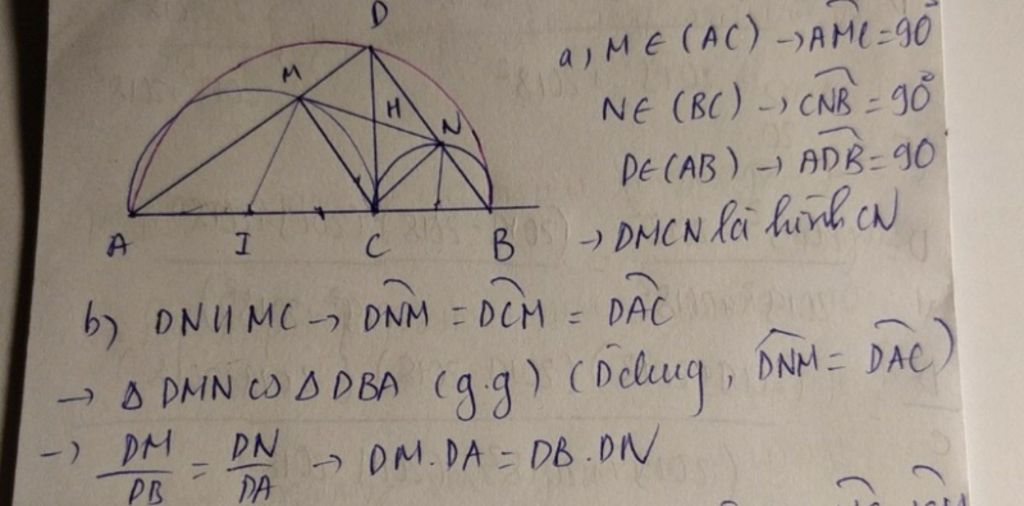 D
M
H
N
A I C B
a, M ∈ (AC) → \widehat{AMC} = 90°
N ∈ (BC) → \widehat{CNB} = 90°
D ∈ (AB) → \widehat{ADB} = 90
→ DMCN là hình CN
b) DN ∥ MC → \widehat{DNM} = \widehat{DCM} = \widehat{DAC}
→ Δ DMN ∽ Δ DBA (g.g) (D chung, \widehat{DNM} = \widehat{DAC})
→ DM/DB = DN/DA → DM.DA = DB.DN